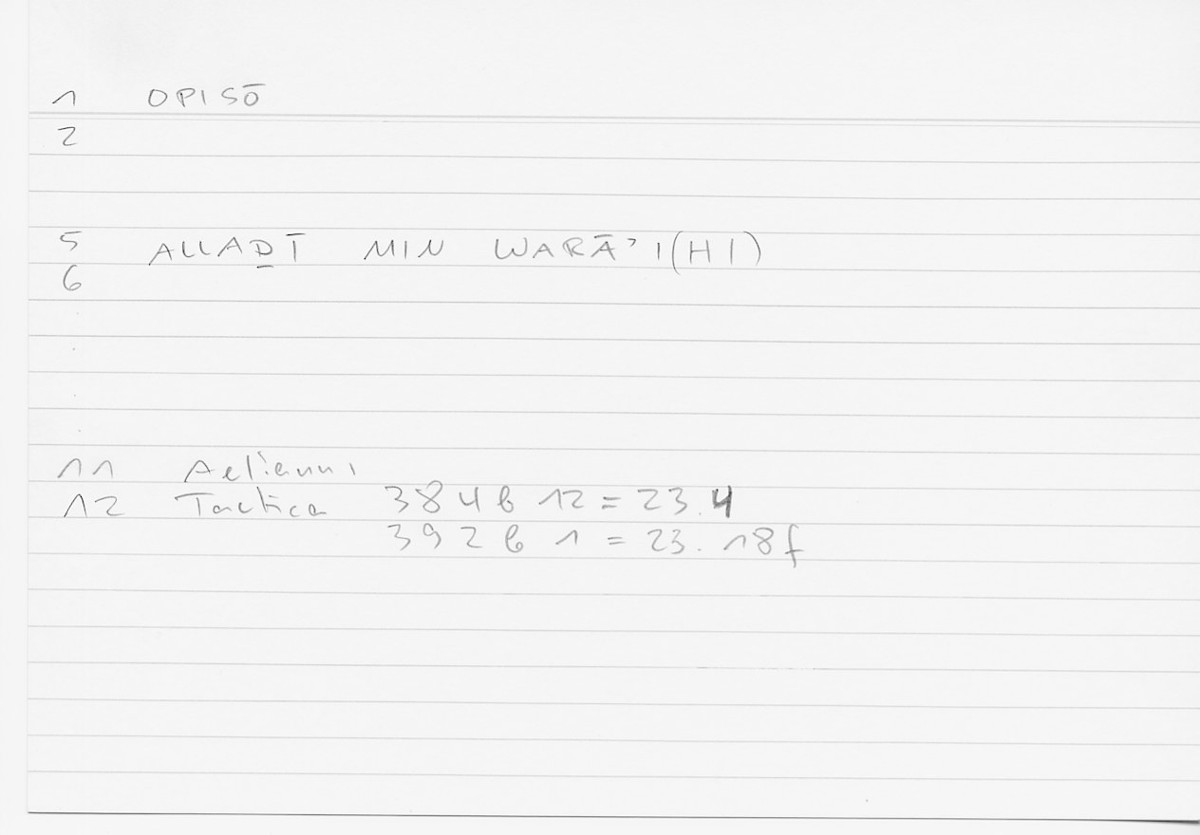 1 OPISŌ
2
5 ALLAḎĪ MIN WARĀʾI(HI)
6
11 Aelianus
12 Tactica 384b 12 = 23.4
392b 1 = 23.18f